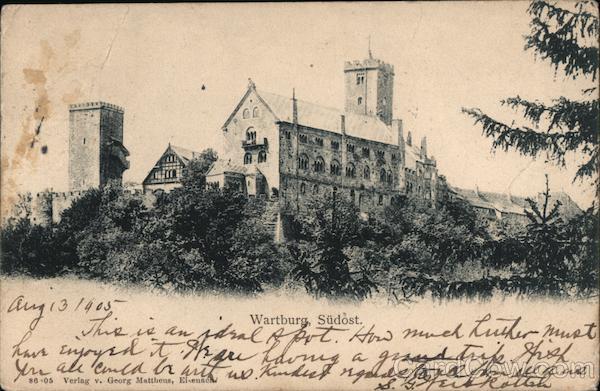 Wartburg, Südost.
Aug 13 1905
This is an ideal spot. How much Luther must
have enjoyed it. We are having a grand trip. Wish
you all could be with us. Kindest regards
86 05 Verlag v. Georg Matthens, Eisenach.
CardCow.com